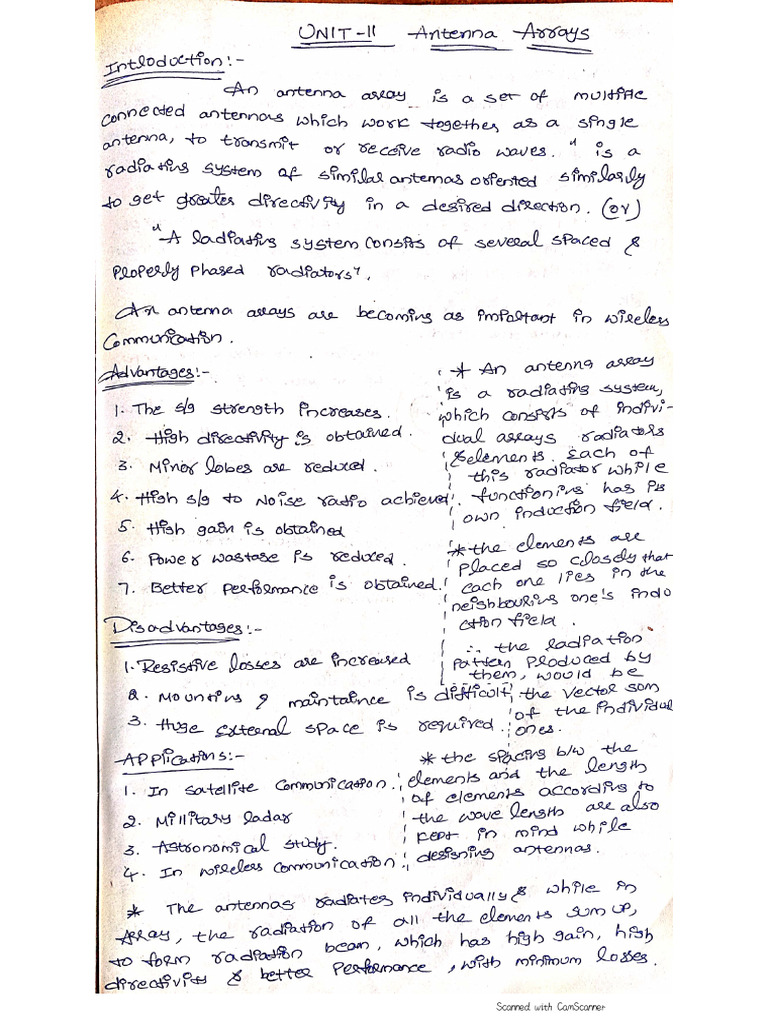 UNIT-II Antenna Arrays
Introduction:-
An antenna array is a set of multiple
connected antennas which work together as a single
antenna, to transmit or receive radio waves. " is a
radiating system of similar antennas oriented similarly
to get greater directivity in a desired direction. (or)
"A radiating system consits of several spaced &
properly phased radiators".
An antenna arrays are becoming as important in wireless
Communication.
Advantages:-
1. The s/g strength increases.
2. High directivity is obtained.
3. Minor lobes are reduced.
4. High s/g to Noise radio achieved.
5. High gain is obtained
6. Power wastage is reduced.
7. Better performance is obtained.
Disadvantages:-
1. Resistive losses are increased
2. Mounting & maintaince is difficult
3. Huge External space is required.
Applications:-
1. In satellite communication.
2. Millitary radar
3. Astronomical study.
4. In wireless communication.
* An antenna array
is a radiating system,
which consists of indivi-
dual arrays radiators
& elements. Each of
this radiator while
functioning has its
own induction field.
* the elements are
placed so closely that
each one lies in the
neighbouring one's indu
ction field.
∴ the radiation
pattern produced by
them, would be
the vector som
of the individual
ones.
* the spacing b/w the
elements and the length
of elements according to
the wave length are also
kept in mind while
designing antennas.
* The antennas radiates individually & while in
Array, the radiation of all the elements sum up,
to form radiation beam, which has high gain, high
directivity & better performance, with minimum losses.
Scanned with CamScanner